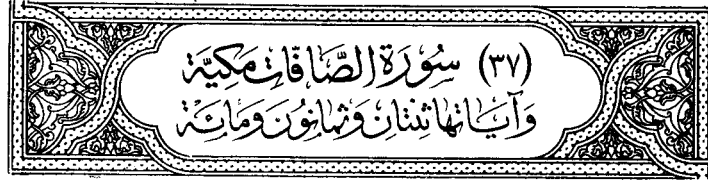 (٣٧) سُورَة الصَّافَّاتِ مَكيَّة
وَآيَاتهَا ثِنتَانِ وَثمَانُونَ وَمائَة